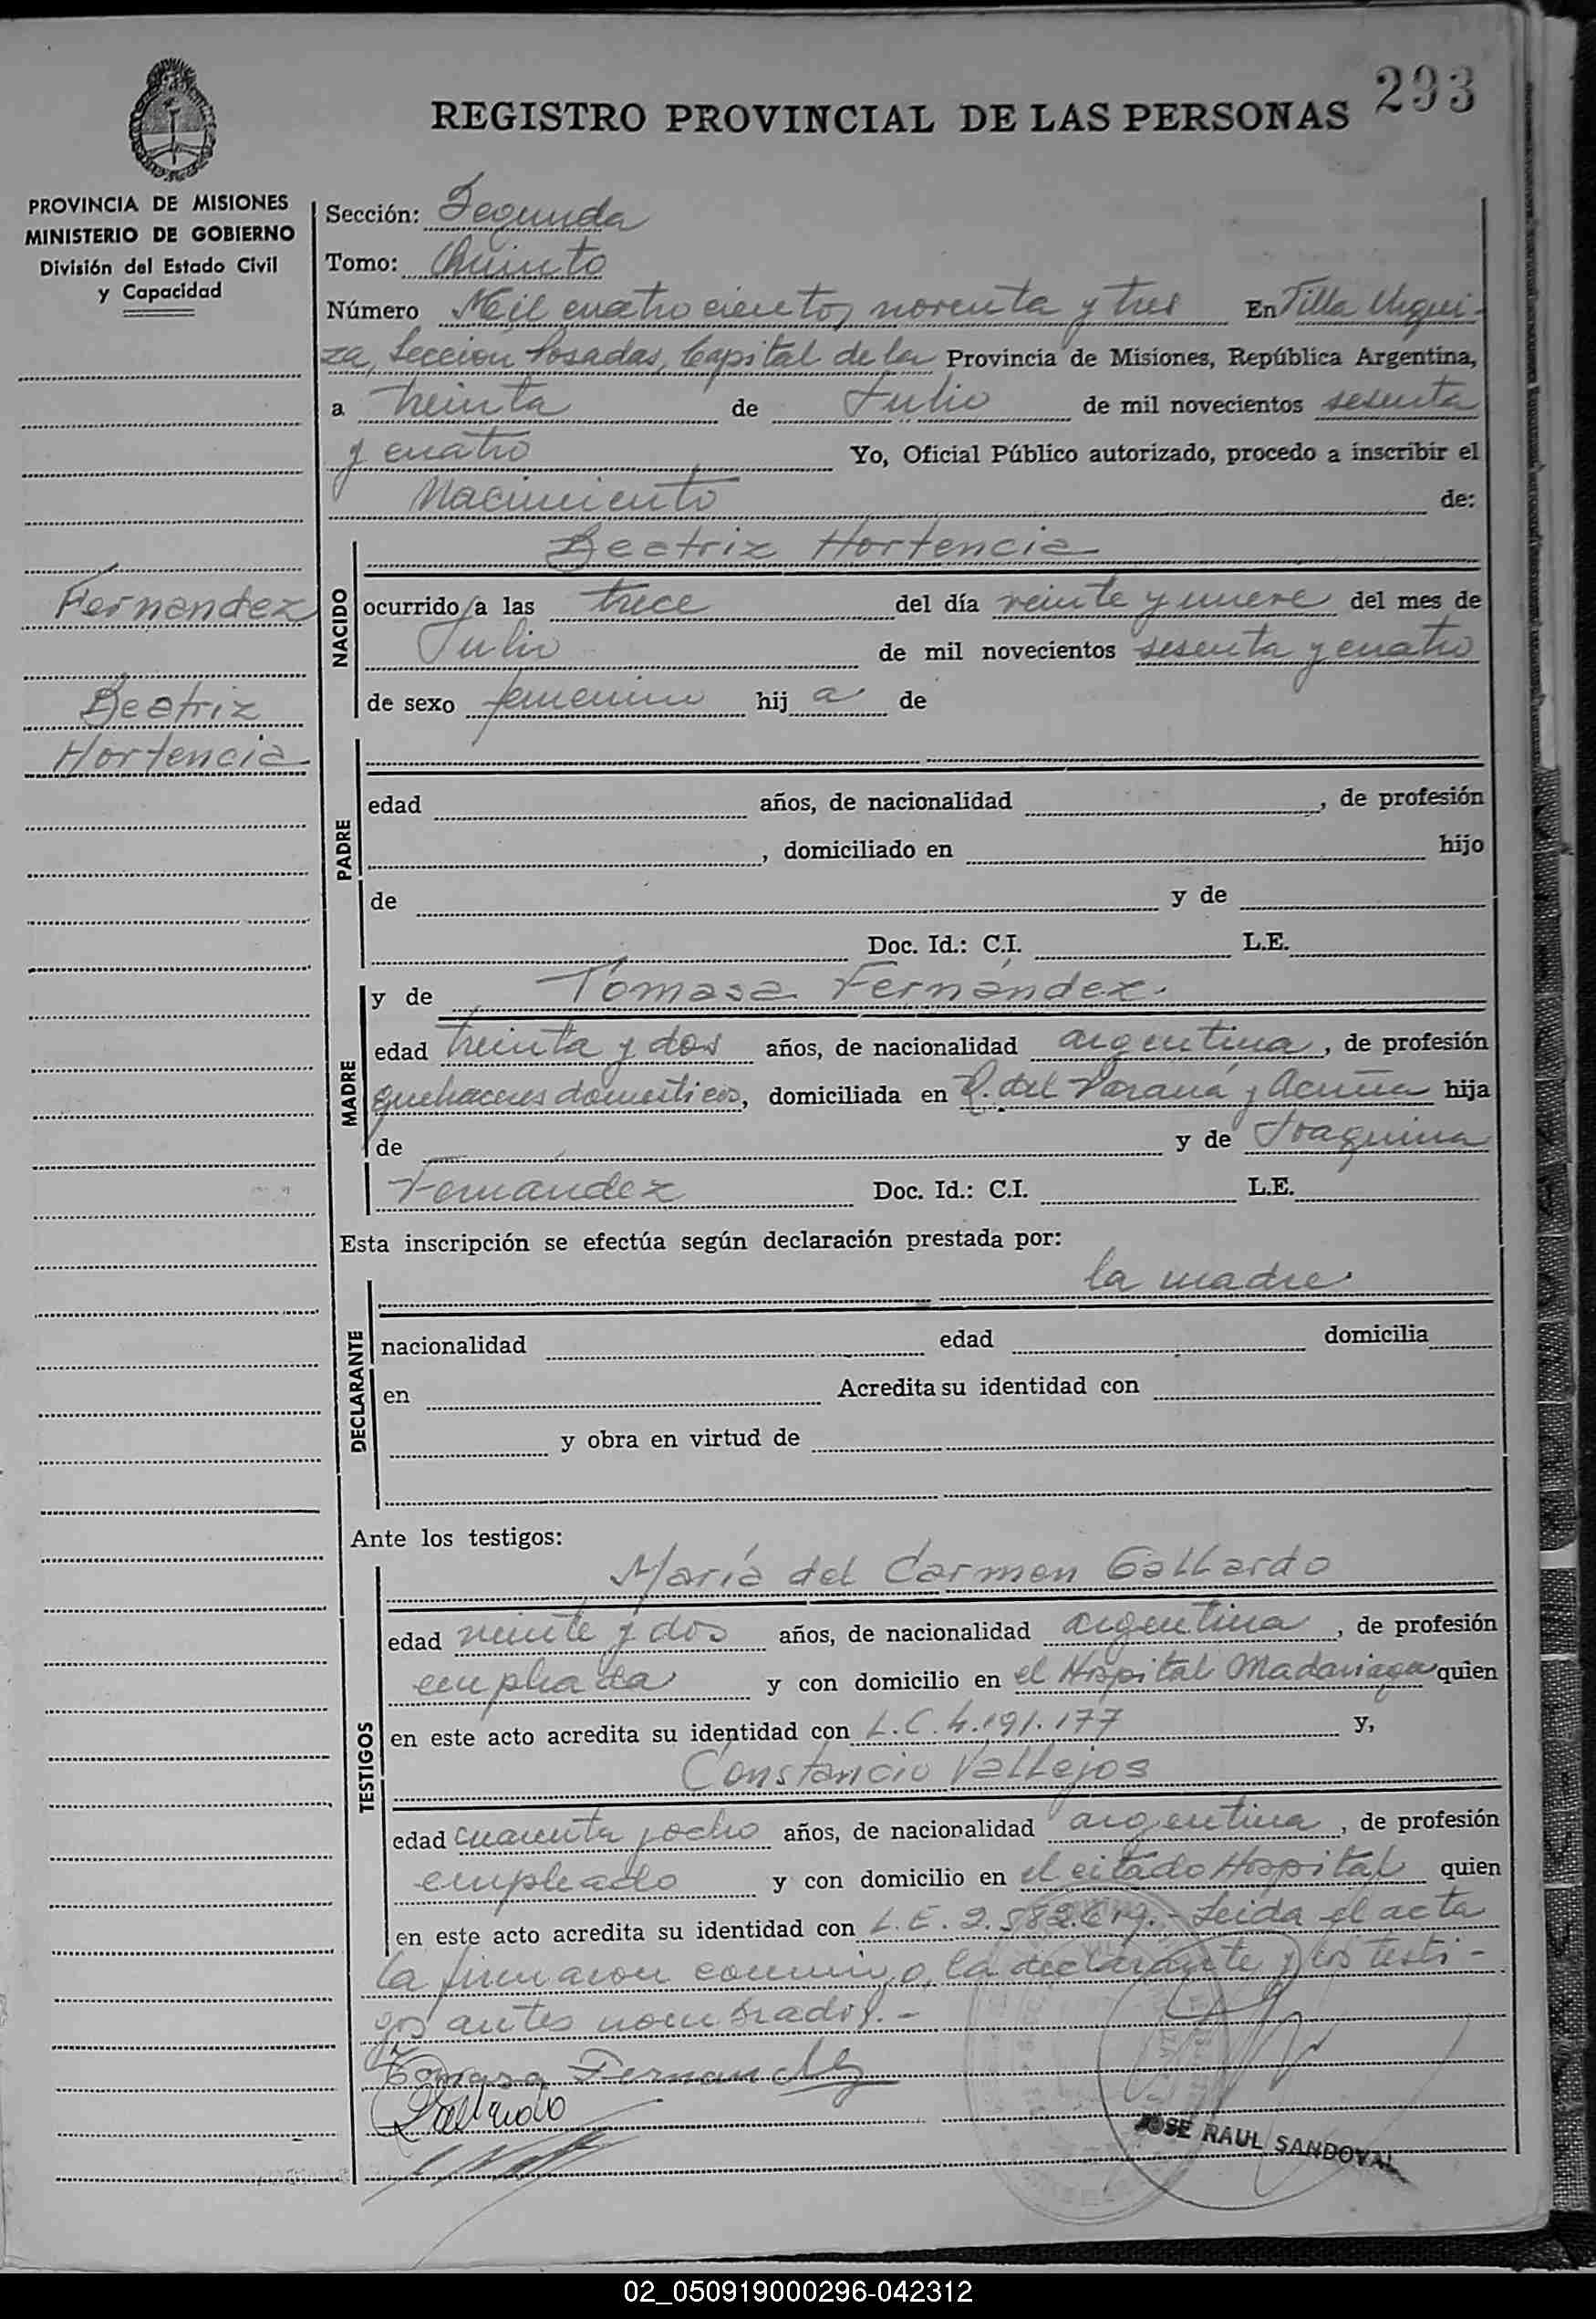 293
REGISTRO PROVINCIAL DE LAS PERSONAS
PROVINCIA DE MISIONES
MINISTERIO DE GOBIERNO
División del Estado Civil
y Capacidad
Fernandez
Beatriz
Hortencia
Sección: Segunda
Tomo: Quinto
Número Mil cuatrocientos noventa y tres En Villa Urqui-
za, Sección Posadas, Capital de la Provincia de Misiones, República Argentina,
a treinta de Julio de mil novecientos sesenta
y cuatro Yo, Oficial Público autorizado, procedo a inscribir el
Nacimiento de:
NACIDO
Beatriz Hortencia
ocurrido a las trece del día veinte y nueve del mes de
Julio de mil novecientos sesenta y cuatro
de sexo femenino hij a de
PADRE
edad años, de nacionalidad , de profesión
, domiciliado en hijo
de y de
Doc. Id.: C.I. L.E.
MADRE
y de Tomasa Fernández.
edad treinta y dos años, de nacionalidad argentina, de profesión
quehaceres domésticos, domiciliada en R. del Paraná y Acuña hija
de y de Joaquina
Fernández Doc. Id.: C.I. L.E.
Esta inscripción se efectúa según declaración prestada por:
DECLARANTE
la madre
nacionalidad edad domicilia
en Acredita su identidad con
y obra en virtud de
Ante los testigos:
TESTIGOS
María del Carmen Gallardo
edad veinte y dos años, de nacionalidad argentina, de profesión
empleada y con domicilio en el Hospital Madariaga quien
en este acto acredita su identidad con L.C. 4.191.177 y,
Constancio Vallejos
edad cuarenta y ocho años, de nacionalidad argentina, de profesión
empleado y con domicilio en el citado Hospital quien
en este acto acredita su identidad con L.E. - Leida el acta
la firmaron conmigo, la declarante y los testi-
gos antes nombrados.-
Tomasa Fernandez
Gallardo
JOSE RAUL SANDOVAL
02_050919000296-042312